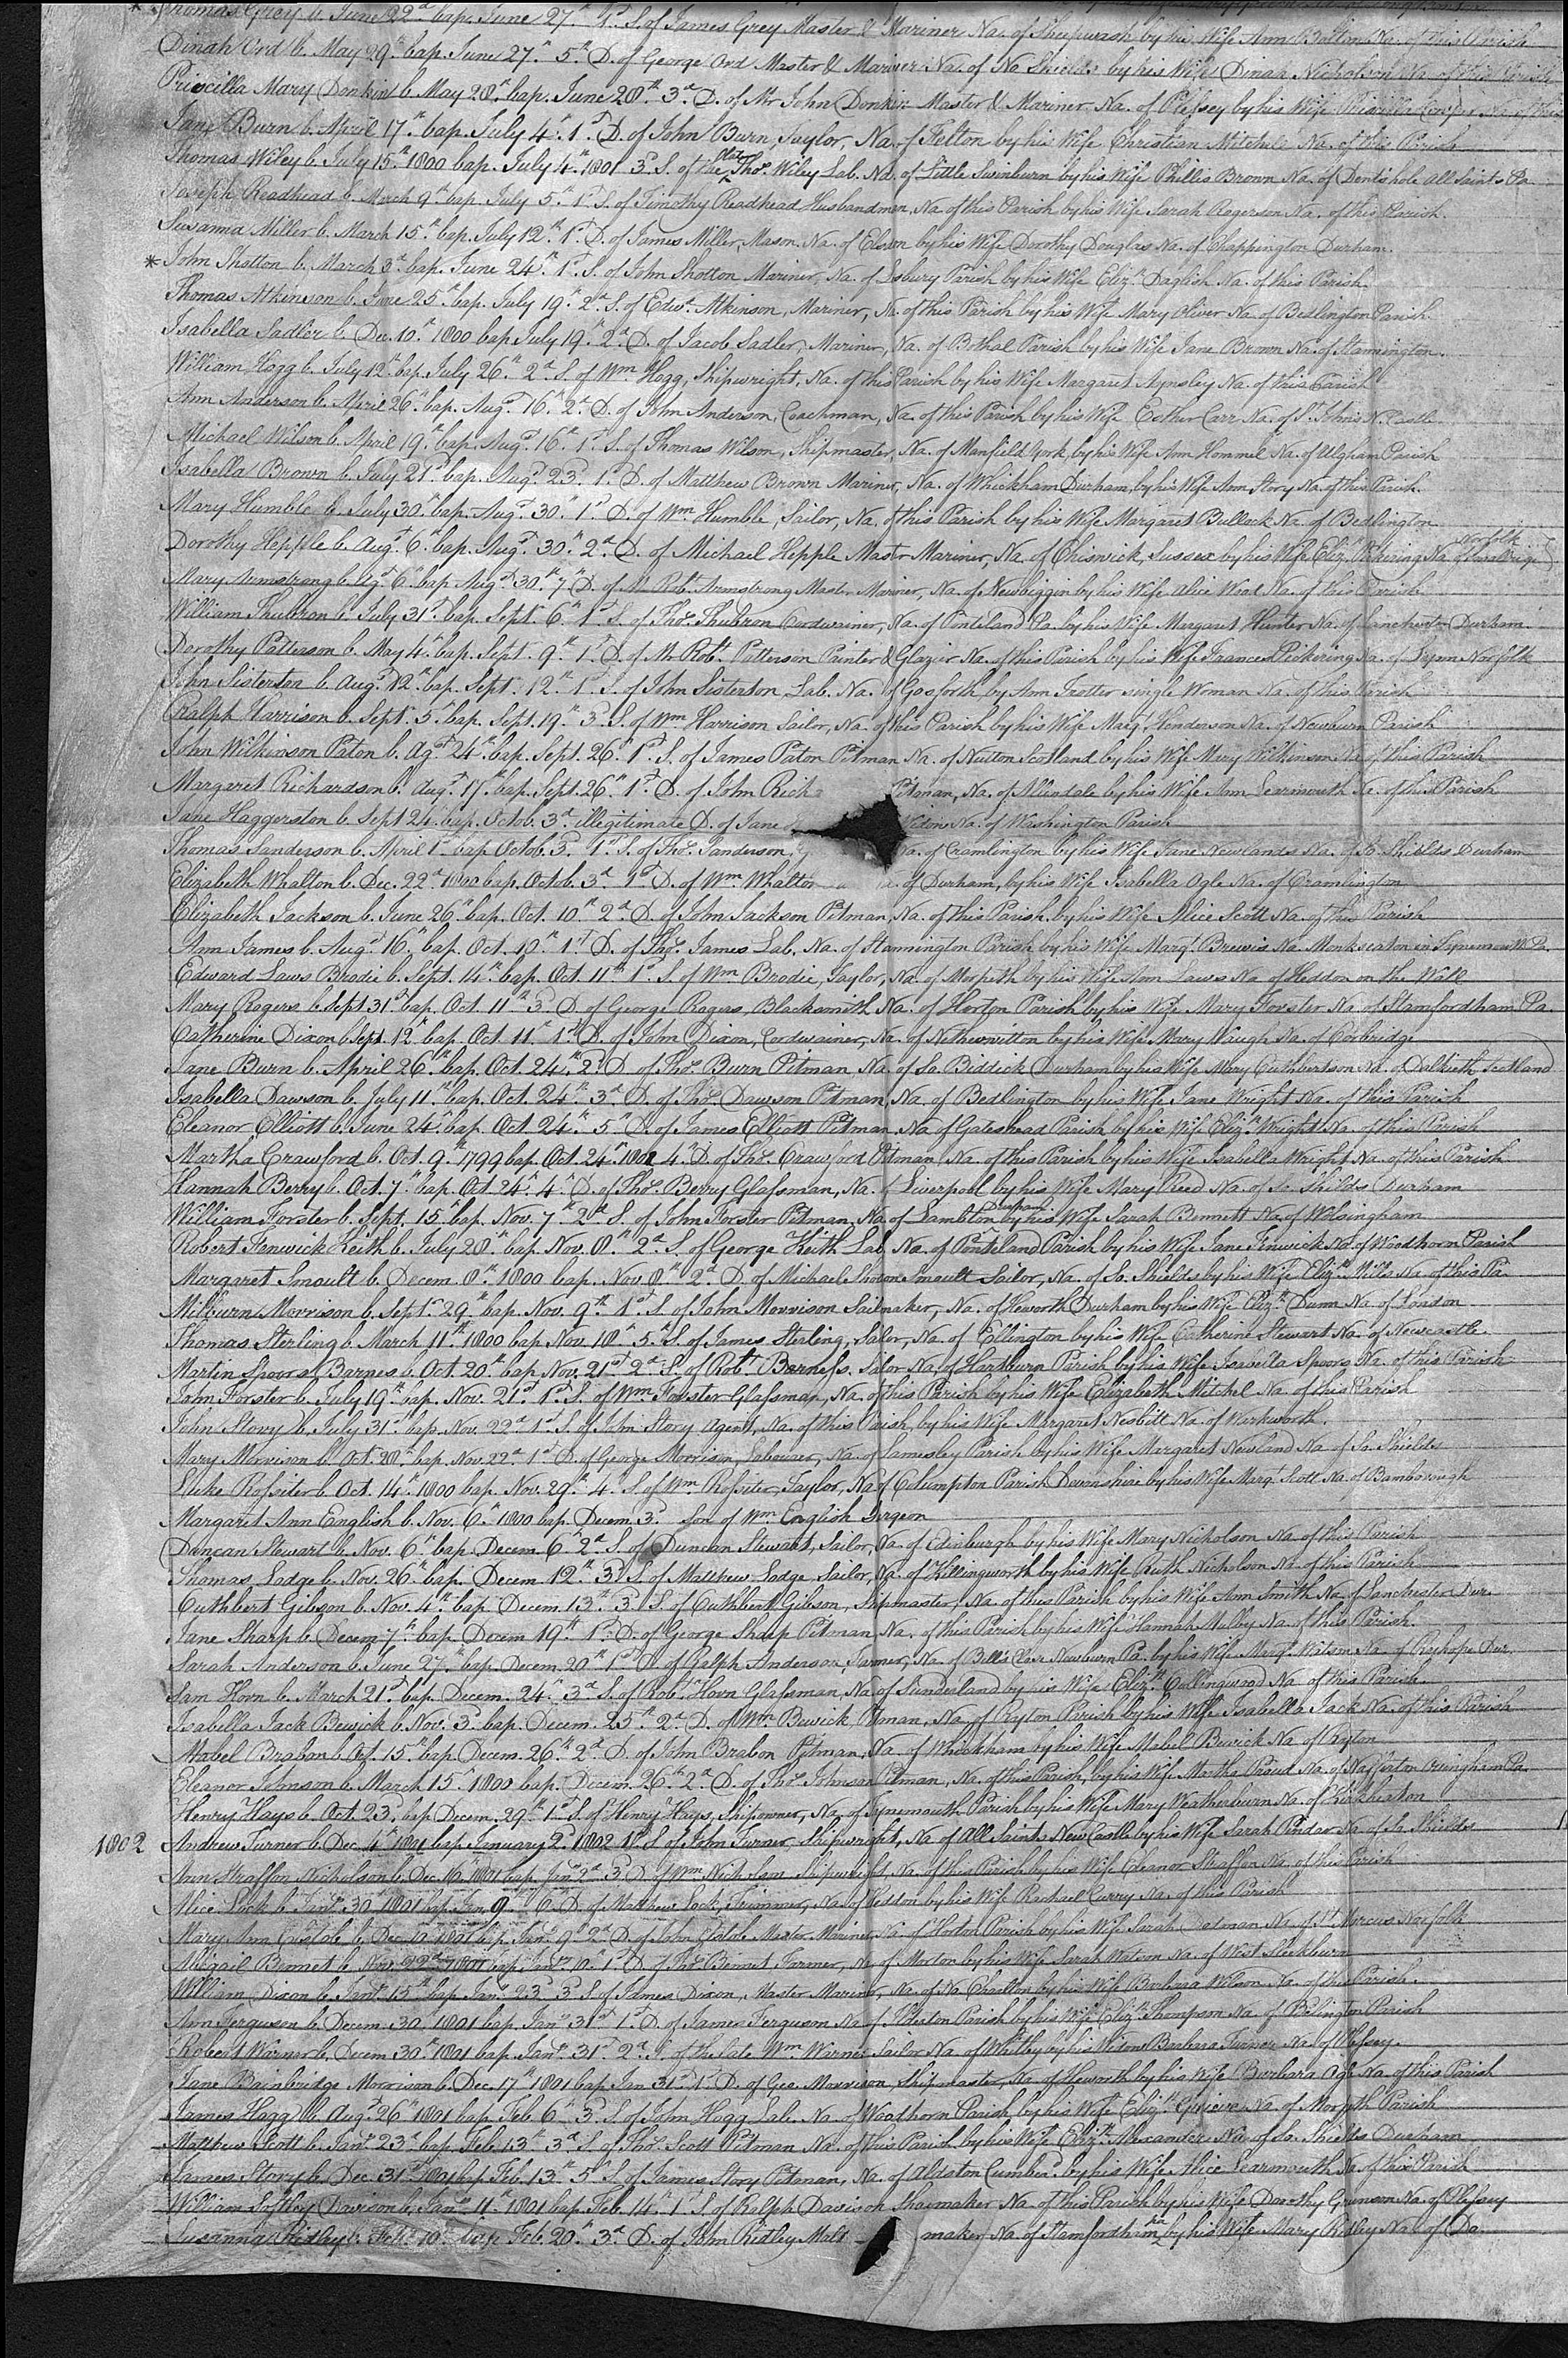 * Thomas Grey b. June 22d bap. June 27th 1st S. of James Grey Master & Mariner Na. of Sheepwash by his Wife Ann Bolton Na. of this Parish
Dinah Ord b. May 29th bap. June 27th 5th D. of George Ord Master & Mariner Na. of No Shields by his Wife Dinah Nicholson Na. of this Parish
Priscilla Mary Donkin b. May 28th bap. June 28th 3d D. of Mr John Donkin Master & Mariner Na. of Plessey by his Wife Priscilla
Jane Burn b. April 17th bap. July 4th 1st D. of John Burn, Taylor, Na. of Felton by his Wife Christian Mitchel Na. of this Parish
Thomas Wiley b. July 15th 1800 bap. July 4th 1801 3d S. of the late Thos. Wiley Lab. Na. of Little Swinburn by his Wife Phillis Brown Na. of Dents hole All Saints Pa.
Joseph Readhead b. March 9th bap. July 5th 1st S. of Timothy Readhead Husbandman, Na. of this Parish by his Wife Sarah Rogerson Na. of this Parish.
Susanna Miller b. March 15th bap. July 12th 1st D. of James Miller, Mason, Na. of Elsdon by his Wife Dorothy Douglas Na. of Chappington Durham.
* John Shotton b. March 3d bap. June 24th 1st S. of John Shotton Mariner, Na. of Lsbury Parish by his Wife Elizth Daglish Na. of this Parish
Thomas Atkinson b. June 25th bap. July 19th 2d S. of Edwd. Atkinson, Mariner, Na. of this Parish by his Wife Mary Oliver Na. of Bedlington Parish.
Isabella Sadler b. Dec. 10th 1800 bap. July 19th 2d D. of Jacob Sadler, Mariner, Na. of Bothal Parish by his Wife Jane Brown Na. of Stannington.
William Hogg b. July 12th bap. July 26th 2d S. of Wm Hogg, Shipwright, Na. of this Parish by his Wife Margaret Aynsley Na. of this Parish
Ann Anderson b. April 26th bap. Augt. 16th 2d D. of John Anderson, Coachman, Na. of this Parish by his Wife Esther Carr Na. of St. Johns N. Castle
Michael Wilson b. April 19th bap. Augt. 16th 1st S. of Thomas Wilson, Shipmaster, Na. of Manfield York, by his Wife Ann Hommil Na. of Ulgham Parish
Isabella Brown b. July 21st bap. Augt. 23d 1st D. of Matthew Brown Mariner, Na. of Whickham Durham, by his Wife Ann Story Na. of this Parish.
Mary Humble b. July 30th bap. Augt. 30th 1st D. of Wm Humble, Sailor, Na. of this Parish by his Wife Margaret Bullock Na. of Bedlington
Dorothy Hepple b. Augt. 6th bap. Augt. 30th 2d D. of Michael Hepple Mastr Mariner, Na. of Chiswick, Sussex by his Wife Elizth Pickering Na. of Norfolk
Mary Armstrong b. Agt. 6th bap Augt. 30th 7th D. of Mr Robt. Armstrong Mastr Mariner, Na. of Newbiggin by his Wife Alice Wood Na. of this Parish
William Shubron b. July 31st bap. Sept. 6th 1st S. of Thos. Shubron Cordwainer, Na. of Ponteland Pa. by his Wife Margaret Hunter Na. of Lanchester Durham.
Dorothy Patterson b. May 4th bap. Sept. 9th 1st D. of Mr Robt. Patterson Painter & Glazier Na. of this Parish by his Wife Frances Pickering Na. of Lynn Norfolk
John Sisterton b. Augt. 12th bap. Sept. 12th 1st S. of John Sisterton, Lab. Na. of Gosforth by Ann Trotter single Woman Na. of this Parish
Ralph Harrison b. Sept. 5th bap. Sept. 19th 3d S. of Wm Harrison Sailor, Na. of this Parish by his Wife Margt. Henderson Na. of Newburn Parish
John Wilkinson Paton b. Agt. 24th bap. Sept. 26th 1st S. of James Paton Pitman Na. of Nutton Scotland by his Wife Mary Wilkinson Na. of this Parish
Margaret Richardson b. Augt. 17th bap. Sept. 26th 1st D. of John Rich Pitman, Na. of Allindale by his Wife Ann Learmouth Na. of this Parish
Jane Haggerston b. Sept 24th bap. Octob. 3d illegitimate D. of Jane Widow Na. of Washington Parish
Thomas Sanderson b. April 1st bap. Octob. 3d 1st S. of Thos. Sanderson, Na. of Cramlington by his Wife Jane Newlands Na. of So. Shields Durham
Elizabeth Whalton b. Dec. 22d 1800 bap. Octob. 3d 1st D. of Wm. Whalton Na. of Durham, by his Wife Isabella Ogle Na. of Cramlington
Elizabeth Jackson b. June 26th bap. Oct. 10th 2d D. of John Jackson Pitman, Na. of this Parish, by his Wife Alice Scott Na. of this Parish
Ann James b. Augt. 16th bap. Oct. 10th 1st D. of Thos. James Lab. Na. of Stannington Parish by his Wife Margt. Brewis Na. Monkseaton in Tynemouth Pa.
Edward Laws Brodie b. Sept. 14th bap. Oct. 11th 1st S. of Wm Brodie, Taylor, Na. of Morpeth by his Wife Ann Laws Na. of Heddon on the Wall
Mary Rogers b. Sept 31st bap. Oct. 11th 3d D. of George Rogers Blacksmith Na. of Horton Parish by his Wife Mary Forster Na. of Stamfordham Pa.
Catherine Dixon b Sept. 12th bap. Oct. 11th 1st D. of John Dixon, Cordwainer, Na. of Netherwitton by his Wife Mary Waugh Na. of Corbridge
Jane Burn b. April 26th bap. Oct. 24th 2d D. of Thos. Burn Pitman, Na. of So. Biddick Durham by his Wife Mary Cuthbertson Na. of Dalkieth Scotland
Isabella Dawson b. July 11th bap. Oct. 24th 3d D. of Thos. Dawson Pitman, Na. of Bedlington by his Wife Jane Wright Na. of this Parish
Eleanor Elliott b. June 24th bap. Oct. 24th 5th D. of James Elliott Pitman, Na. of Gateshead Parish by his Wife Elizth Wright Na. of this Parish
Martha Crawford b. Oct. 9th 1799 bap. Oct. 24th 1801 4th D. of Thos. Crawford Pitman, Na. of this Parish by his Wife Isabella Wright Na. of this Parish
Hannah Berry b. Oct. 7th bap. Oct 24th 4th D. of Thos. Berry Glassman, Na. of Liverpool by his Wife Mary Reed Na. of So. Shields Durham
William Forster b. Sept. 15th bap. Nov. 7th 2d S. of John Forster Pitman, Na. of Lambton Durham by his Wife Sarah Bennett Na. of Wolsingham
Robert Fenwick Keith b. July 28th bap. Nov. 8th 2d S. of George Keith Lab. Na. of Ponteland Parish by his Wife Jane Fenwick Na. of Woodhorn Parish
Margaret Smoult b. Decem. 8th 1800 bap. Nov. 8th 2d D. of Michael Smoult Sailor, Na. of So. Shields by his Wife Elizth Mills Na. of this Pa.
Milburn Morrison b. Sept. 29th bap. Nov. 9th 1st S. of John Morrison Sailmaker, Na. of Heworth Durham by his Wife Elizth Dunn Na. of London
Thomas Sterling b. March 11th 1800 bap. Nov. 18th 5th S. of James Sterling, Sailor, Na. of Ellington by his Wife Catherine Stewart Na. of Newcastle.
Martin Spoors Barnes b. Oct. 20th bap. Nov. 21st 2d S. of Robt. Barness. Sailor Na. of Hartburn Parish by his Wife Isabella Spoors Na. of this Parish
John Forster b. July 19th bap. Nov. 21st 1st S. of Wm Forster Glassman, Na. of this Parish by his Wife Elizabeth Mitchel Na. of this Parish
John Story b. July 31st bap. Nov. 22d 1st S. of John Story Agent, Na. of this Parish, by his Wife Margaret Nesbitt Na. of Warkworth.
Mary Morrison b. Oct. 28th bap. Nov. 22d 1st D. of George Morrison, Labourer, Na. of Lamesley Parish by his Wife Margaret Newland Na. of So. Shields
Luke Rossiter b. Oct. 14th 1800 bap. Nov. 29th 4th S. of Wm Rossiter, Taylor, Na. of Columpton Parish Devonshire by his Wife Margt. Scott Na. of Bamborough
Margaret Ann English b. Nov. 6th 1800 bap. Decem. 3d son of Wm English Surgeon
Duncan Stewart b. Nov. 6th bap. Decem. 6th 2d S. of Duncan Stewart, Sailor, Na. of Edinburgh by his Wife Mary Nicholson Na. of this Parish
Thomas Lodge b. Nov. 26th bap. Decem. 12th 3d S. of Matthew Lodge Sailor, Na. of Killingworth by his Wife Ruth Nicholson Na. of this Parish
Cuthbert Gibson b. Nov. 4th bap. Decem. 13th 3d S. of Cuthbert Gibson, Shipmaster, Na. of this Parish by his Wife Ann Smith Na. of Lanchester Dur.
Jane Sharp b. Decem. 7th bap. Decem 19th 1st D. of George Sharp Pitman Na. of this Parish by his Wife Hannah Na. of this Parish.
Sarah Anderson b. June 27th bap. Decem. 20th 1st D. of Ralph Anderson, Farmer, Na. of Bells Close Newburn Pa. by his Wife Margt. Watson Na. of Ryhope Dur.
Sam Horn b. March 21st bap. Decem. 24th 3d S. of Robt. Horn Glassman, Na. of Sunderland by his Wife Elizth Collingwood Na. of this Parish.
Isabella Jack Bewick b. Nov. 3d bap. Decem. 25th 2d D. of Wm Bewick, Pitman, Na. of Ryton Parish by his Wife Isabella Jack Na. of this Parish
Mabel Brabon b. Oct. 15th bap. Decem. 26th 2d D. of John Brabon Pitman, Na. of Whickham by his Wife Mabel Bewick Na. of Ryton
Eleanor Johnson b. March 15th 1800 bap. Decem. 26th 2d D. of Thos. Johnson Pitman, Na. of this Parish, by his Wife Martha Proud Na. of Nafferton Ovingham Pa.
Henry Hays b. Oct. 23d bap. Decem. 29th 1st S. of Henry Hays, Shipowner, Na. of Tynemouth Parish by his Wife Mary Weatherburn Na. of Kirkheaton
1802 Andrew Turner b. Dec. 4th 1801 bap. January 2d 1802 1st S. of John Turner, Shipwright, Na. of All Saints NewCastle by his Wife Sarah Pindar Na. of So. Shields
Ann Straffon Nicholson b. Dec. 16th 1801 bap. Jany. 2d 3d D. of Wm. Nicholson Shipwright Na. of this Parish by his Wife Eleanor Straffon Na. of this Parish
Alice Lock b. Jany. 30th 1801 bap. Jan. 9th 6th D. of Matthew Lock, Trimmer, Na. of Heddon by his Wife Rachael Curry Na. of this Parish
Mary Ann b. Dec. 1801 bap. Jany. 9th 2d D. of John Master Mariner Na. of Horton Parish by his Wife Sarah Na. of St. Marcus Norfolk
Abigail Bromet b. Nov. 22d 1801 bap. Jany. 10th 1st D. of Thos. Bennet Farmer, Na. of Morton by his Wife Sarah Watson Na. of West Sleekburn
William Dixon b. Jany. 15th bap. Jany. 23d 3d S. of James Dixon, Master Mariner, Na. of No. Charlton by his Wife Barbara Wilson Na. of this Parish.
Ann Ferguson b. Decem. 30th 1801 bap. Jany. 31st 1st D. of James Ferguson Na. of Parish by his Wife Elizth Thompson Na. of Bedlington Parish
Robert Warner b. Decem 30th 1801 bap. Jany. 31st 2d S. of the late Wm. Warner Sailor Na. of Whitby by his Widow Barbara Turner Na. of Plessey.
Jane Bainbridge Morrison b. Dec. 17th 1801 bap. Jan 31st 1st D. of Geo. Morrison, Shipmaster, Na. of Heworth by his Wife Barbara Ogle Na. of this Parish
James Hogg b. Augt. 26th 1801 bap. Feb. 6th 3d S. of John Hogg Lab. Na. of Woodhorn Parish, by his Wife Elizth Na. of Morpeth Parish
Matthew Scott b. Jany. 23d bap. Feb. 13th 3d S. of Thos. Scott Pitman Na. of this Parish by his Wife Elizth Alexander Na. of So. Shields Durham
James Story b. Dec. 31st 1801 bap. Feb. 13th 5th S. of James Story Pitman, Na. of Aldston Cumbd. by his Wife Alice Learmouth Na. of this Parish
William Softley Davison b. Jany. 11th 1801 bap. Feb. 14th 1st S. of Ralph Davison Shoemaker Na. of this Parish by his Wife Dorothy Na. of Plessey
Susanna Ridley b. Feby. 10th bap Feb. 20th 3d D. of John Ridley Malt maker Na. of Stamfordham Pa. by his Wife Mary Ridley Na. of Do.